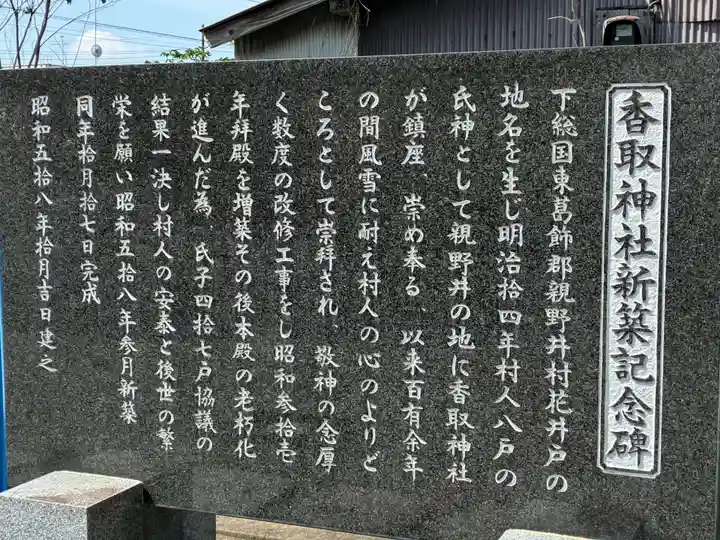 香取神社新築記念碑
下総国東葛飾郡親野井村花井戸の
地名を生じ明治拾四年村人八戸の
氏神として親野井の地に香取神社
が鎮座、崇め奉る、以来百有余年
の間風雪に耐え村人の心のよりど
ころとして崇拝され、敬神の念厚
く数度の改修工事をし昭和参拾壱
年拝殿を増築その後本殿の老朽化
が進んだ為、氏子四拾七戸協議の
結果一決し村人の安泰と後世の繁
栄を願い昭和五拾八年参月新築
同年拾月拾七日完成
昭和五拾八年拾月吉日建之